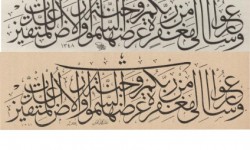 وسارعوا الى مغفرة من ربكم وجنة عرضها السموات والارض اعدت للمتقين
١٣٤٨
وسارعوا الى مغفرة من ربكم وجنة عرضها السموات والارض اعدت للمتقين